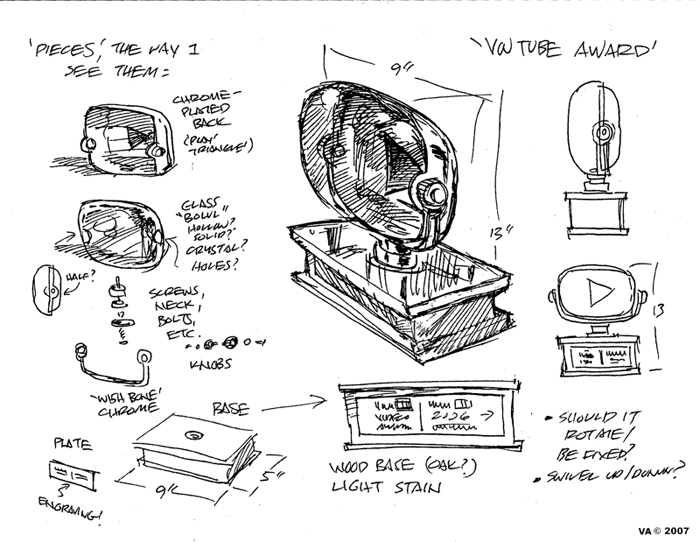 'PIECES', THE WAY I
SEE THEM:
'YOUTUBE AWARD'
CHROME-
PLATED
BACK
('PLAY'
TRIANGLE!)
GLASS
"BOWL"
HOLLOW?
SOLID?
CRYSTAL?
HOLES?
HALF?
SCREWS,
NECK,
BOLTS,
ETC.
KNOBS
'WISH BONE'
CHROME
PLATE
ENGRAVING!
BASE
9"
5"
9"
13"
13
VIDEO
2006
WOOD BASE (OAK?)
LIGHT STAIN
• SHOULD IT
ROTATE/
BE FIXED?
• SWIVEL UP/DOWN?
VA © 2007